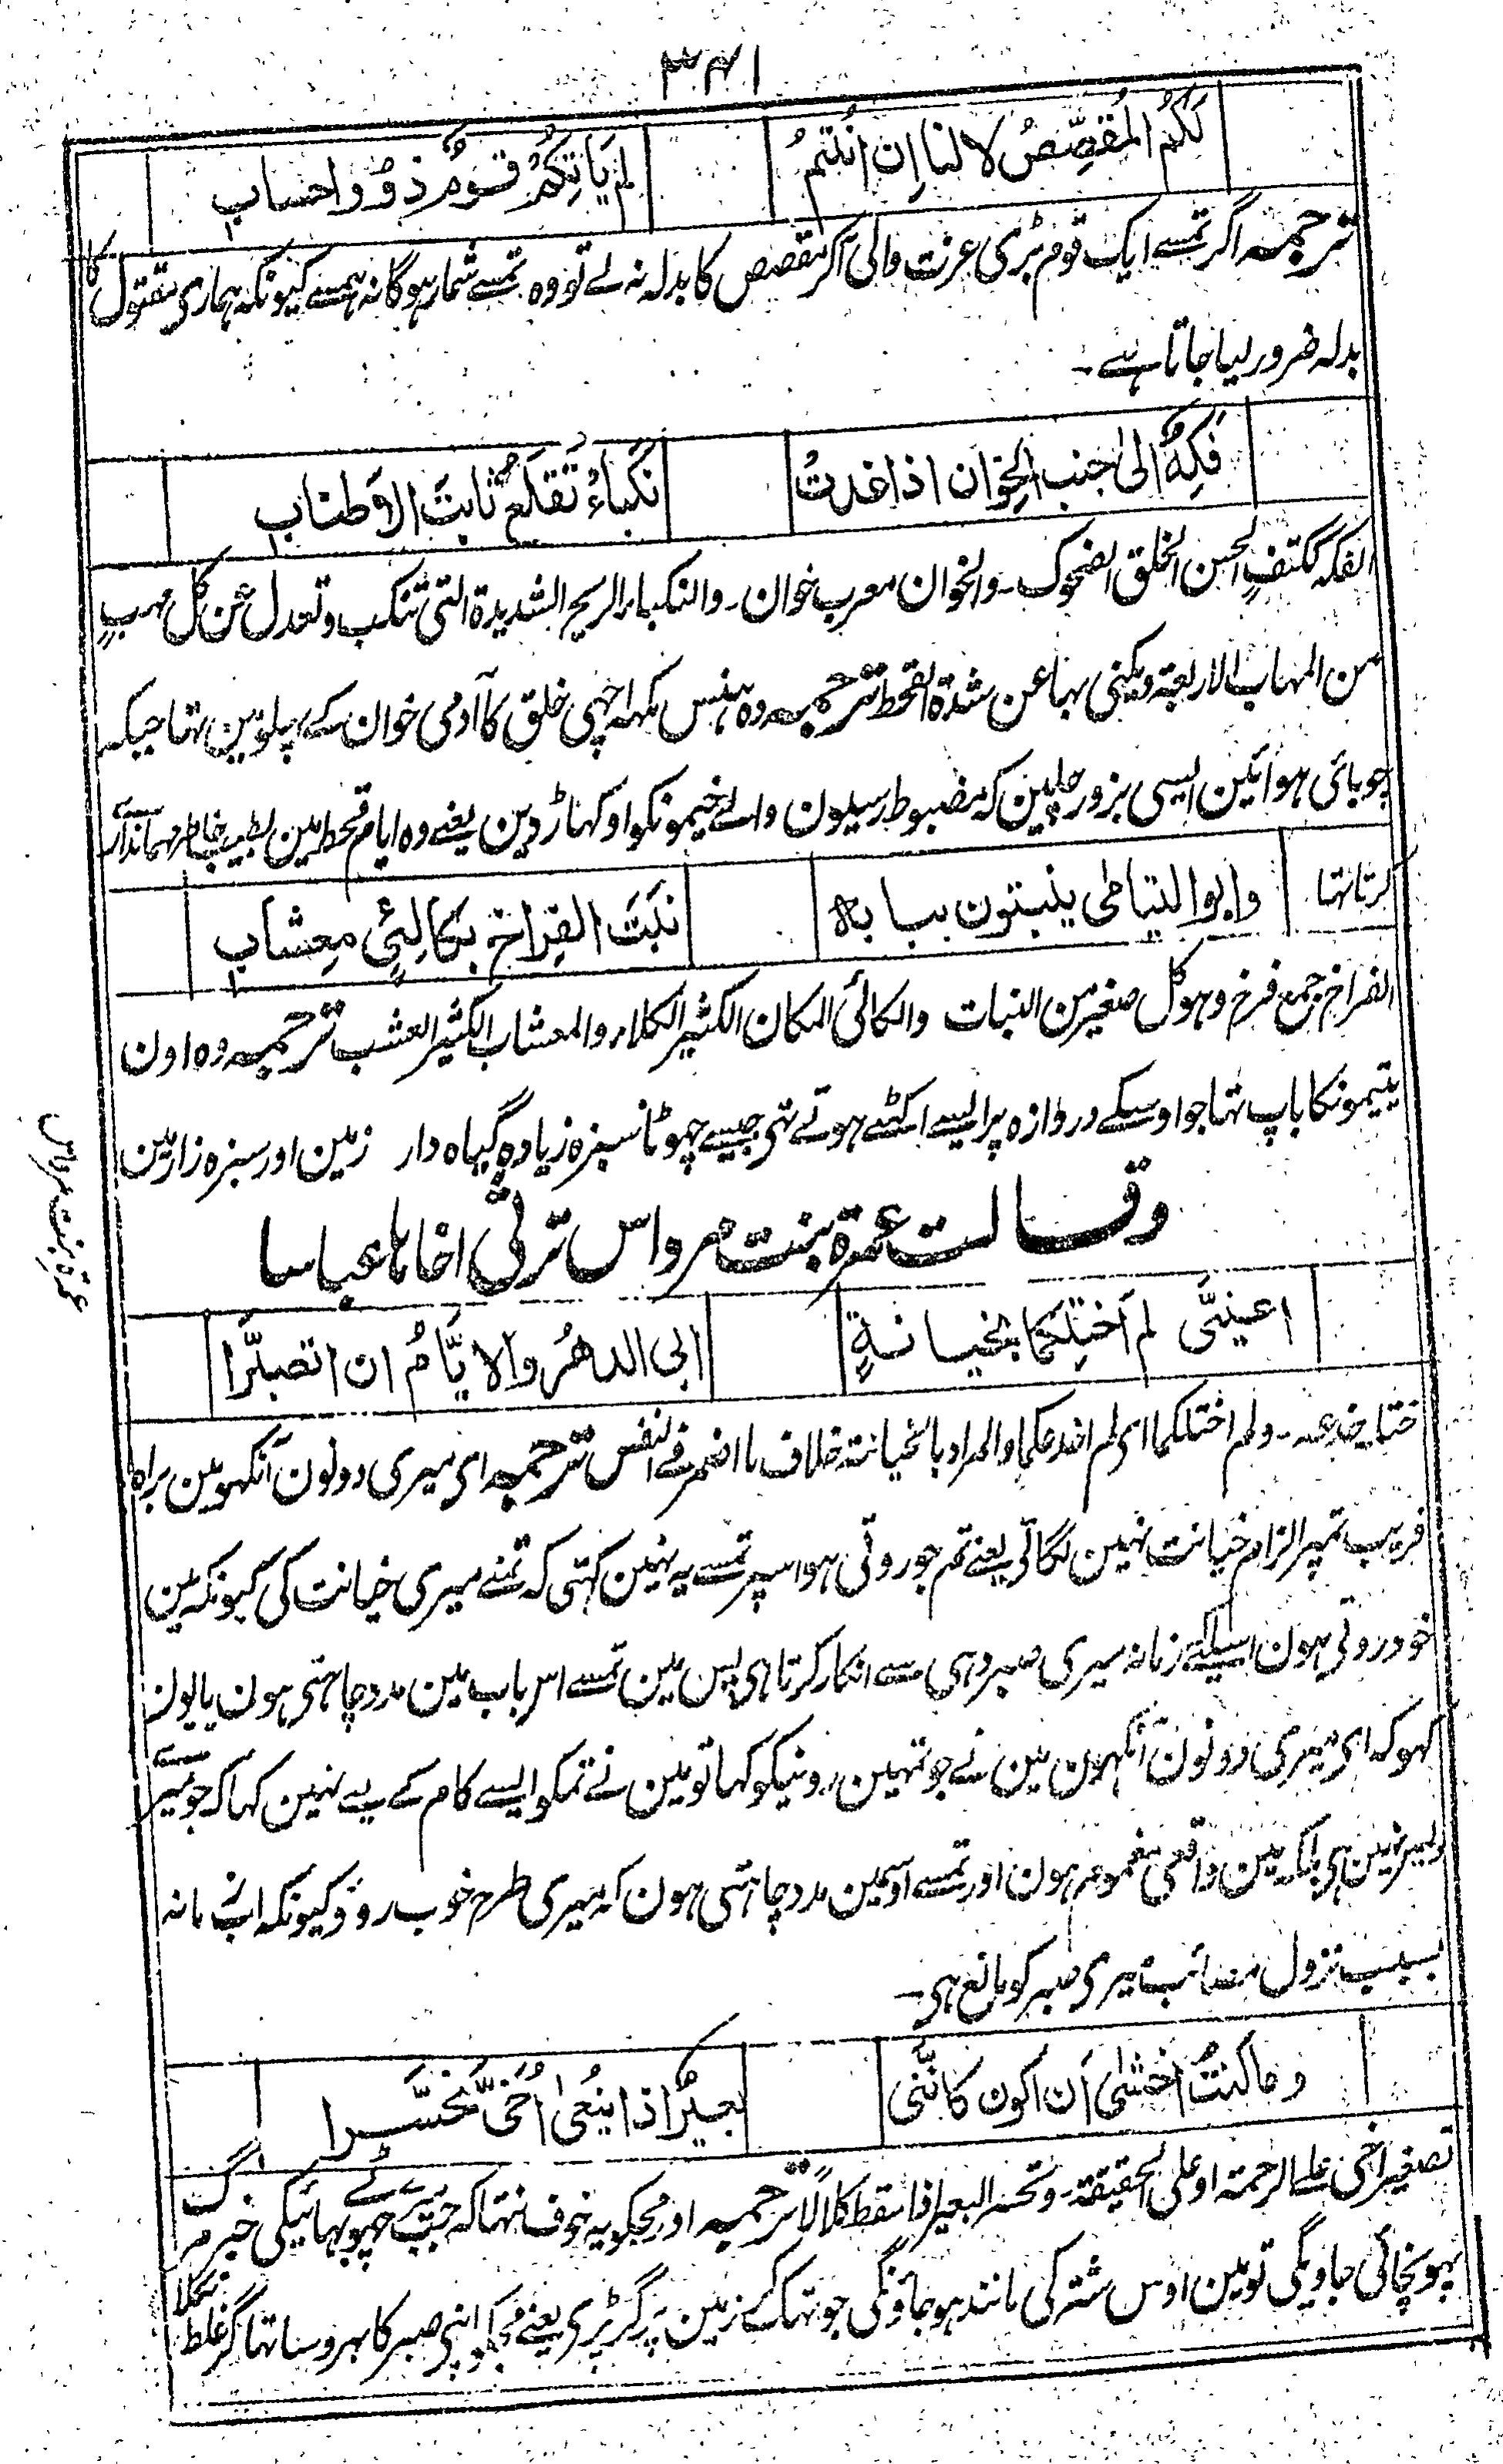 ۳۴۱
لَكُمُ المُقصِّصُ لا لنا اِن انتمُ لم يَاتِكُمُ قومٌ ذوو احساب
ترجمہ اگر تمسے ایک قوم بڑی عزت والی آکر مقصص کا بدلہ نہ لے تو وہ تمسے شمار ہوگا نہ ہمسے کیونکہ ہماری مقتول کا
بدلہ ضرور لیا جاتا ہے ۔
فَكِهٌ الى جنب الخِوان اذا غدت نكباءُ تَقلَعُ ثابتَ الاَطناب
الفکہ ککتفٍ الحسن الخلق الضحوک ۔ والخوان معرب خوان ۔ والنکباء الریح الشدیدۃ التی تنکب وتعدل عن کل مہبٍ
من المہاب الاربعۃ ویکنی بہا عن شدۃ القحط ترجمہ وہ ہنس مکہہ اچہی خلق کا آدمی خوان کے پہلو مین تہا جبکہ
چوبائی ہوائین ایسی بزور چلین کہ مضبوط رسیون والے خیمونکو اوکہاڑ دین یعنے وہ ایام قحط مین بطیب خاطر مہمانداری
کرتا تہا وابو اليتامى ينبتون ببابه نَبَتَ الفِراخ بكالِئٍ مِعشاب
الفراخ جمع فرخ وہو کل صغیر من النبات والکالئ المکان الکثیر الکلاء والمعشاب الکثیر العشب ترجمہ وہ اون
یتیمونکا باپ تہا جو اوسکے دروازہ پر ایسے اکٹھے ہوتے تہی جیسے چہوٹا سبزہ زیادہ گیاہ دار زمین اور سبزہ زار مین
وقالت عمرة بنت مرداس ترثی اخاها عباسا
عمرۃ بنت مرداس
اعينىَّ لم اَختِلكما بخيانةٍ ابى الدهرُ والايَّامُ ان اتصبَّرا
ختلہ خدعہ ۔ ولم اختلکما ای لم اخدعکما والمراد بالخیانۃ خلاف ما اضمر فے النفس ترجمہ ای میری دونون آنکہو مین براہ
فریب تمپر الزام خیانت نہین لگاتی یعنے تم جو روتی ہو اسپر تمسے یہ نہین کہتی کہ تمنے میری خیانت کی کیونکہ مین
خود روتی ہون اسیلئے زمانہ میری صبر دہی سے انکار کرتا ہی پس مین تمسے اس باب مین مدد چاہتی ہون یا یون
کہو کہ ای میری دونون آنکہون مین نے جو تمہین رونیکو کہا تو مین نے تمکو ایسے کام کے لیے نہین کہا کہ جو میرے
دلمین نہین ہی بلکہ مین واقعی مغموم ہون اور تمسے اوسمین مدد چاہتی ہون کہ میری طرح خوب روؤ کیونکہ اب زمانہ
بسبب نزول مصائب میری صبر کو مانع ہی ۔
وما كنتُ اخشى اَن اكون كاننى بعيرٌ اذا ينعى اُخَىَّ تحسَّرا
تصغیر اخی علے الرحمۃ او علی الحقیقۃ ۔ وتحسر البعیر اذا سقط کلالاً ترجمہ اور مجکو یہ خوف نتہا کہ جب میرے چہوٹے بہائیکی خبر مرگ
پہونچائی جاویگی تو مین اوس شتر کی مانند ہو جاؤنگی جو تہک کے زمین پر گر پڑی یعنے مجکو اپنی صبر کا بہروسا تہا مگر غلط نکلا